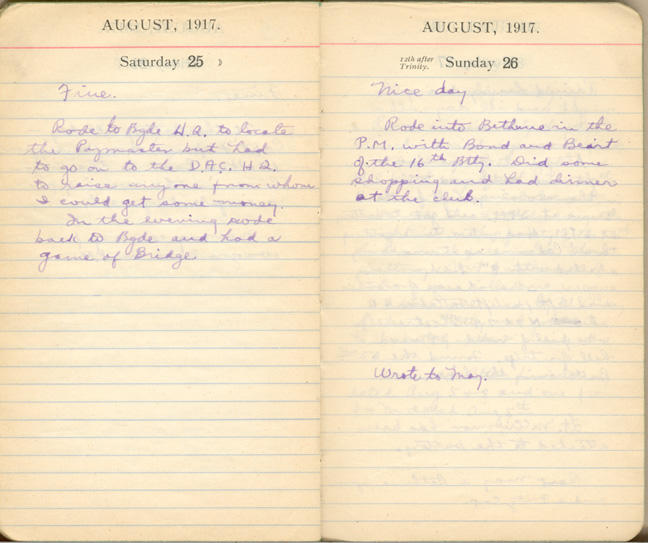 AUGUST, 1917.
Saturday 25
Fine.
Rode to Bgde H.Q. to locate
the Paymaster but had
to go on to the D.A.C. H.Q.
to raise any one from whom
I could get some money.
In the evening rode
back to Bgde and had a
game of Bridge.
AUGUST, 1917.
12th after
Trinity. Sunday 26
Nice day
Rode into Bethune in the
P.M. with Bond and
of the 16th Bty. Did some
shopping and had dinner
at the club.
Wrote to May.